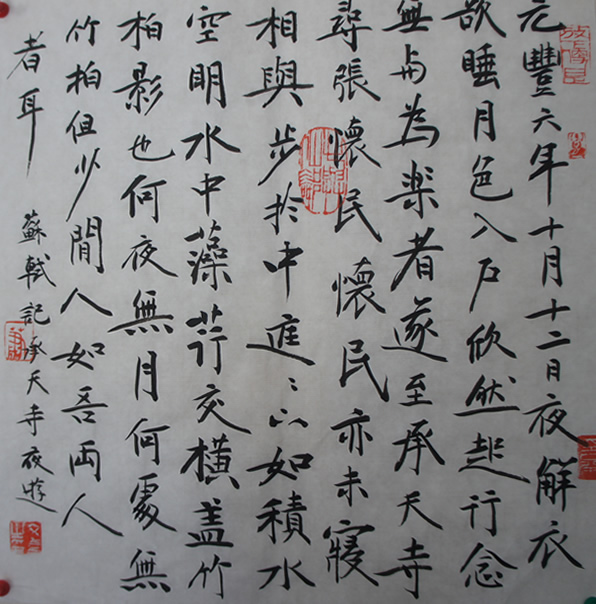 元豐六年十月十二日夜解衣
欲睡月色入戶欣然起行念
無与為楽者遂至承天寺
尋張懷民懷民亦未寢
相與步於中庭〻下如積水
空明水中藻荇交橫盖竹
柏影也何夜無月何處無
竹柏但少閒人如吾両人
者耳
蘇軾記承天寺夜遊